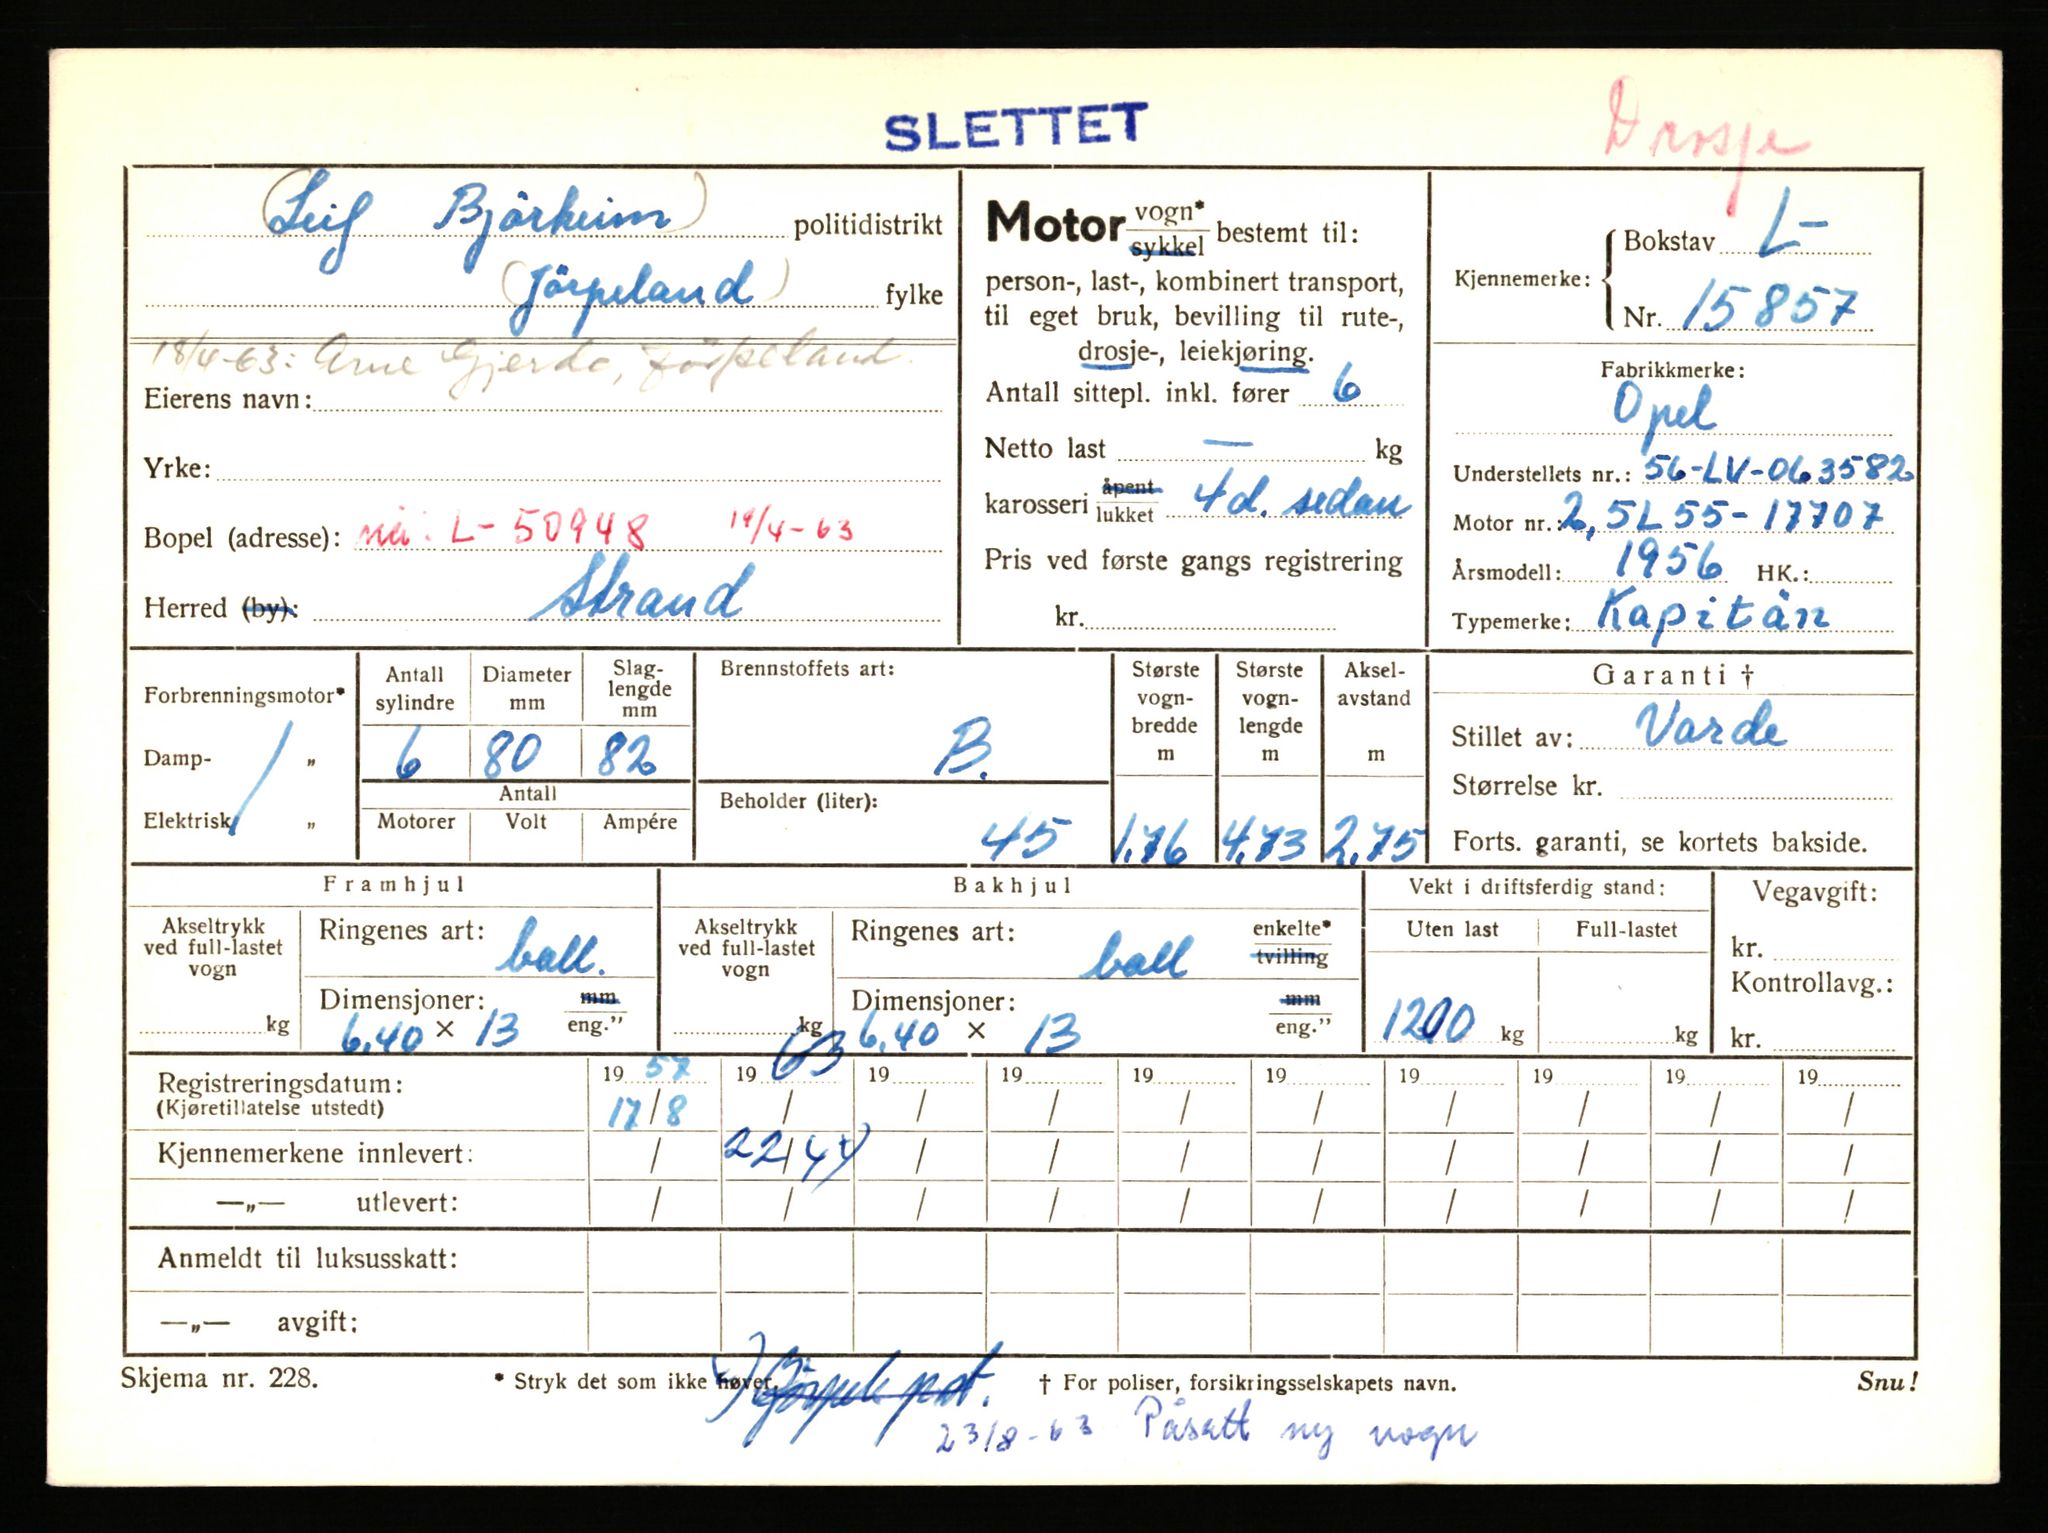 SLETTET
Drosje
(Leif Bjørheim) politidistrikt
(Jørpeland) fylke
18/4-63: Arne Gjerde, Jørpeland.
Eierens navn:
Yrke:
Bopel (adresse): nå: L-50948 19/4-63
Herred (by): Strand
Motor vogn* sykkel bestemt til:
person-, last-, kombinert transport,
til eget bruk, bevilling til rute-,
drosje-, leiekjøring.
Antall sittepl. inkl. fører 6
Netto last — kg
karosseri åpent lukket 4d. sedan
Pris ved første gangs registrering
kr.
Kjennemerke: Bokstav L-
Nr. 15857
Fabrikkmerke:
Opel
Understellets nr.: 56-LV-063582
Motor nr.: 2,5L 55-17707
Årsmodell: 1956 HK.:
Typemerke: Kapitän
Forbrenningsmotor*
Damp- „
Elektrisk „
Antall sylindre Diameter mm Slag-lengde mm
6 80 82
Antall
Motorer Volt Ampére
Brennstoffets art:
B.
Beholder (liter):
45
Største vogn-bredde m
1.76
Største vogn-lengde m
4.73
Aksel-avstand m
2.75
Garanti †
Stillet av: Varde
Størrelse kr.
Forts. garanti, se kortets bakside.
Framhjul
Akseltrykk ved full-lastet vogn
kg
Ringenes art: ball.
Dimensjoner: mm
6.40 × 13 eng.”
Bakhjul
Akseltrykk ved full-lastet vogn
kg
Ringenes art: ball enkelte* tvilling
Dimensjoner: mm
6.40 × 13 eng.”
Vekt i driftsferdig stand:
Uten last Full-lastet
1200 kg kg
Vegavgift:
kr.
Kontrollavg.:
kr.
Registreringsdatum: 19 57 19 63 19 19 19 19 19 19 19 19
(Kjøretillatelse utstedt) 17/8 / / / / / / / / /
Kjennemerkene innlevert: / 22/4 4) / / / / / / / /
—„— utlevert: / / / / / / / / / /
Anmeldt til luksusskatt:
—„— avgift:
Skjema nr. 228. * Stryk det som ikke høver. † For poliser, forsikringsselskapets navn. Snu!
23/8-63 Påsatt ny vogn